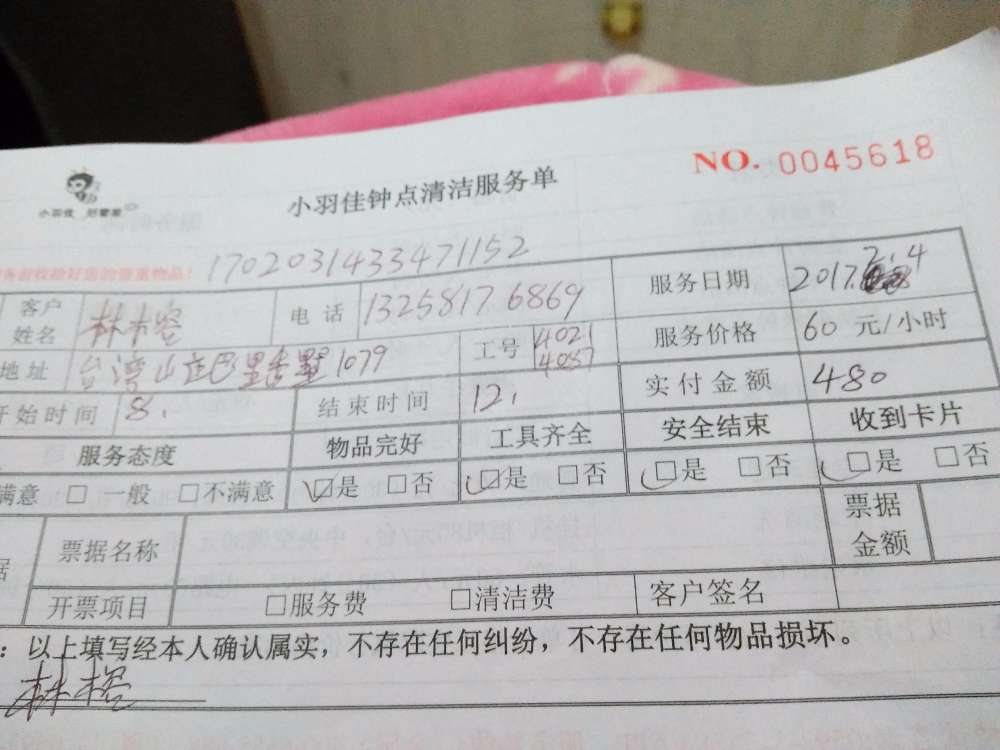 NO. 0045618
小羽佳
小羽佳钟点清洁服务单
务前收拾好您的贵重物品！ 1702031433471152
客户姓名 林木容 电话 13258176869 服务日期 2017.2.4
地址 台湾山庄巴里香墅1079 工号 4021 4057 服务价格 60 元/小时
开始时间 8. 结束时间 12. 实付金额 480
服务态度 物品完好 工具齐全 安全结束 收到卡片
满意 □ 一般 □不满意 ☑是 □否 ☑是 □否 ☑是 □否 ☑是 □否
据 票据名称 票据金额
开票项目 □服务费 □清洁费 客户签名
：以上填写经本人确认属实，不存在任何纠纷，不存在任何物品损坏。
林木容